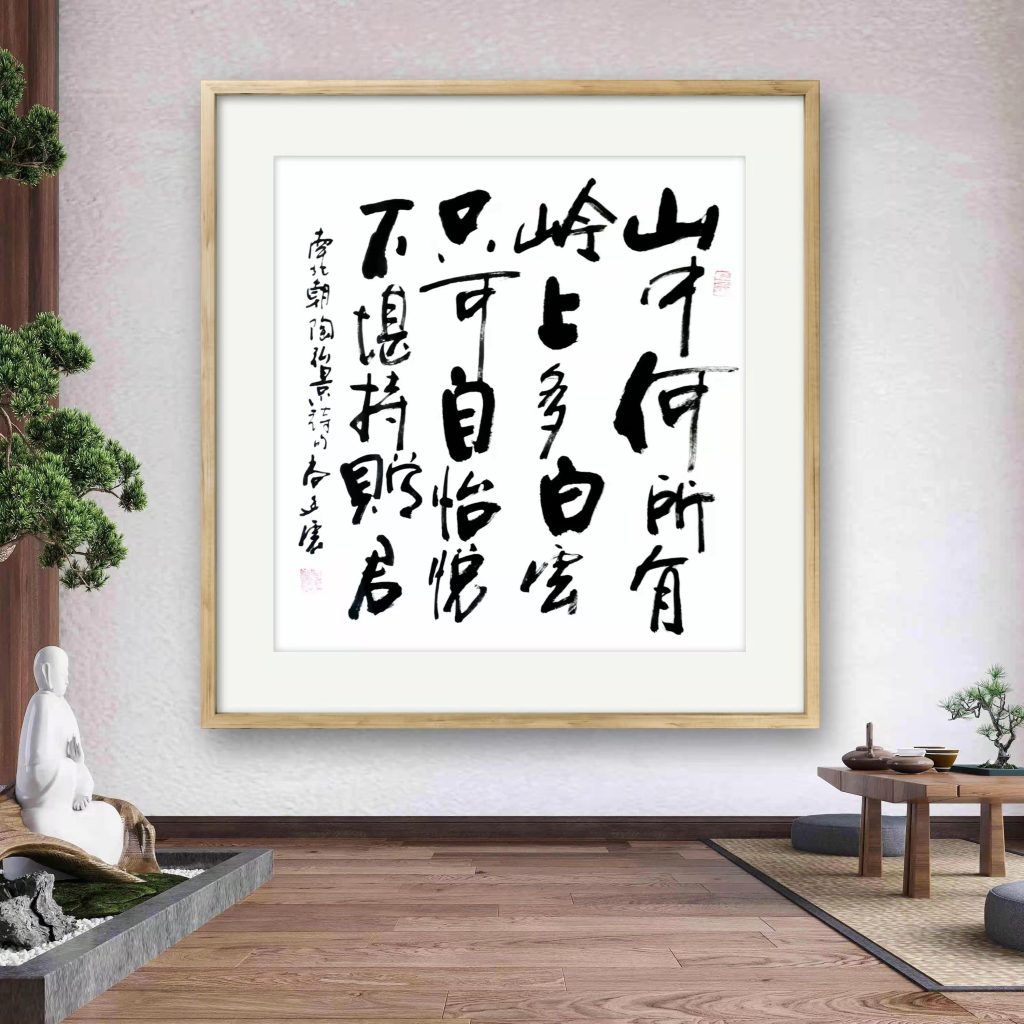 山中何所有
岭上多白雲
只可自怡悦
不堪持贈君
南北朝陶弘景詩句